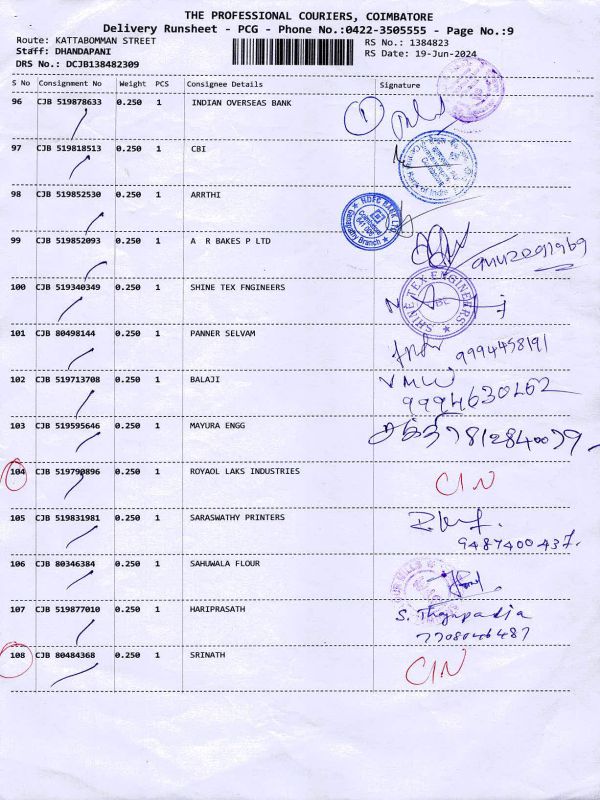 THE PROFESSIONAL COURIERS, COIMBATORE
Delivery Runsheet - PCG - Phone No.:0422-3505555 - Page No.:9
Route: KATTABOMMAN STREET
RS No.: 1384823
Staff: DHANDAPANI
RS Date: 19-Jun-2024
DRS No.: DCJB138482309
S No Consignment No Weight PCS Consignee Details Signature
96 CJB 519878633 0.250 1 INDIAN OVERSEAS BANK
97 CJB 519818513 0.250 1 CBI
98 CJB 519852530 0.250 1 ARRTHI
HDFC BANK LTD
99 CJB 519852093 0.250 1 A R BAKES P LTD
100 CJB 519340349 0.250 1 SHINE TEX FNGINEERS
SHINE TEX ENGINEERS
101 CJB 80498144 0.250 1 PANNER SELVAM 9994458191
102 CJB 519713708 0.250 1 BALAJI
9994630262
103 CJB 519595646 0.250 1 MAYURA ENGG சக்தி 7812840079
104 CJB 519790896 0.250 1 ROYAOL LAKS INDUSTRIES CIN
105 CJB 519831981 0.250 1 SARASWATHY PRINTERS
9487400437.
106 CJB 80346384 0.250 1 SAHUWALA FLOUR
107 CJB 519877010 0.250 1 HARIPRASATH S.
7708046487
108 CJB 80484368 0.250 1 SRINATH CIN